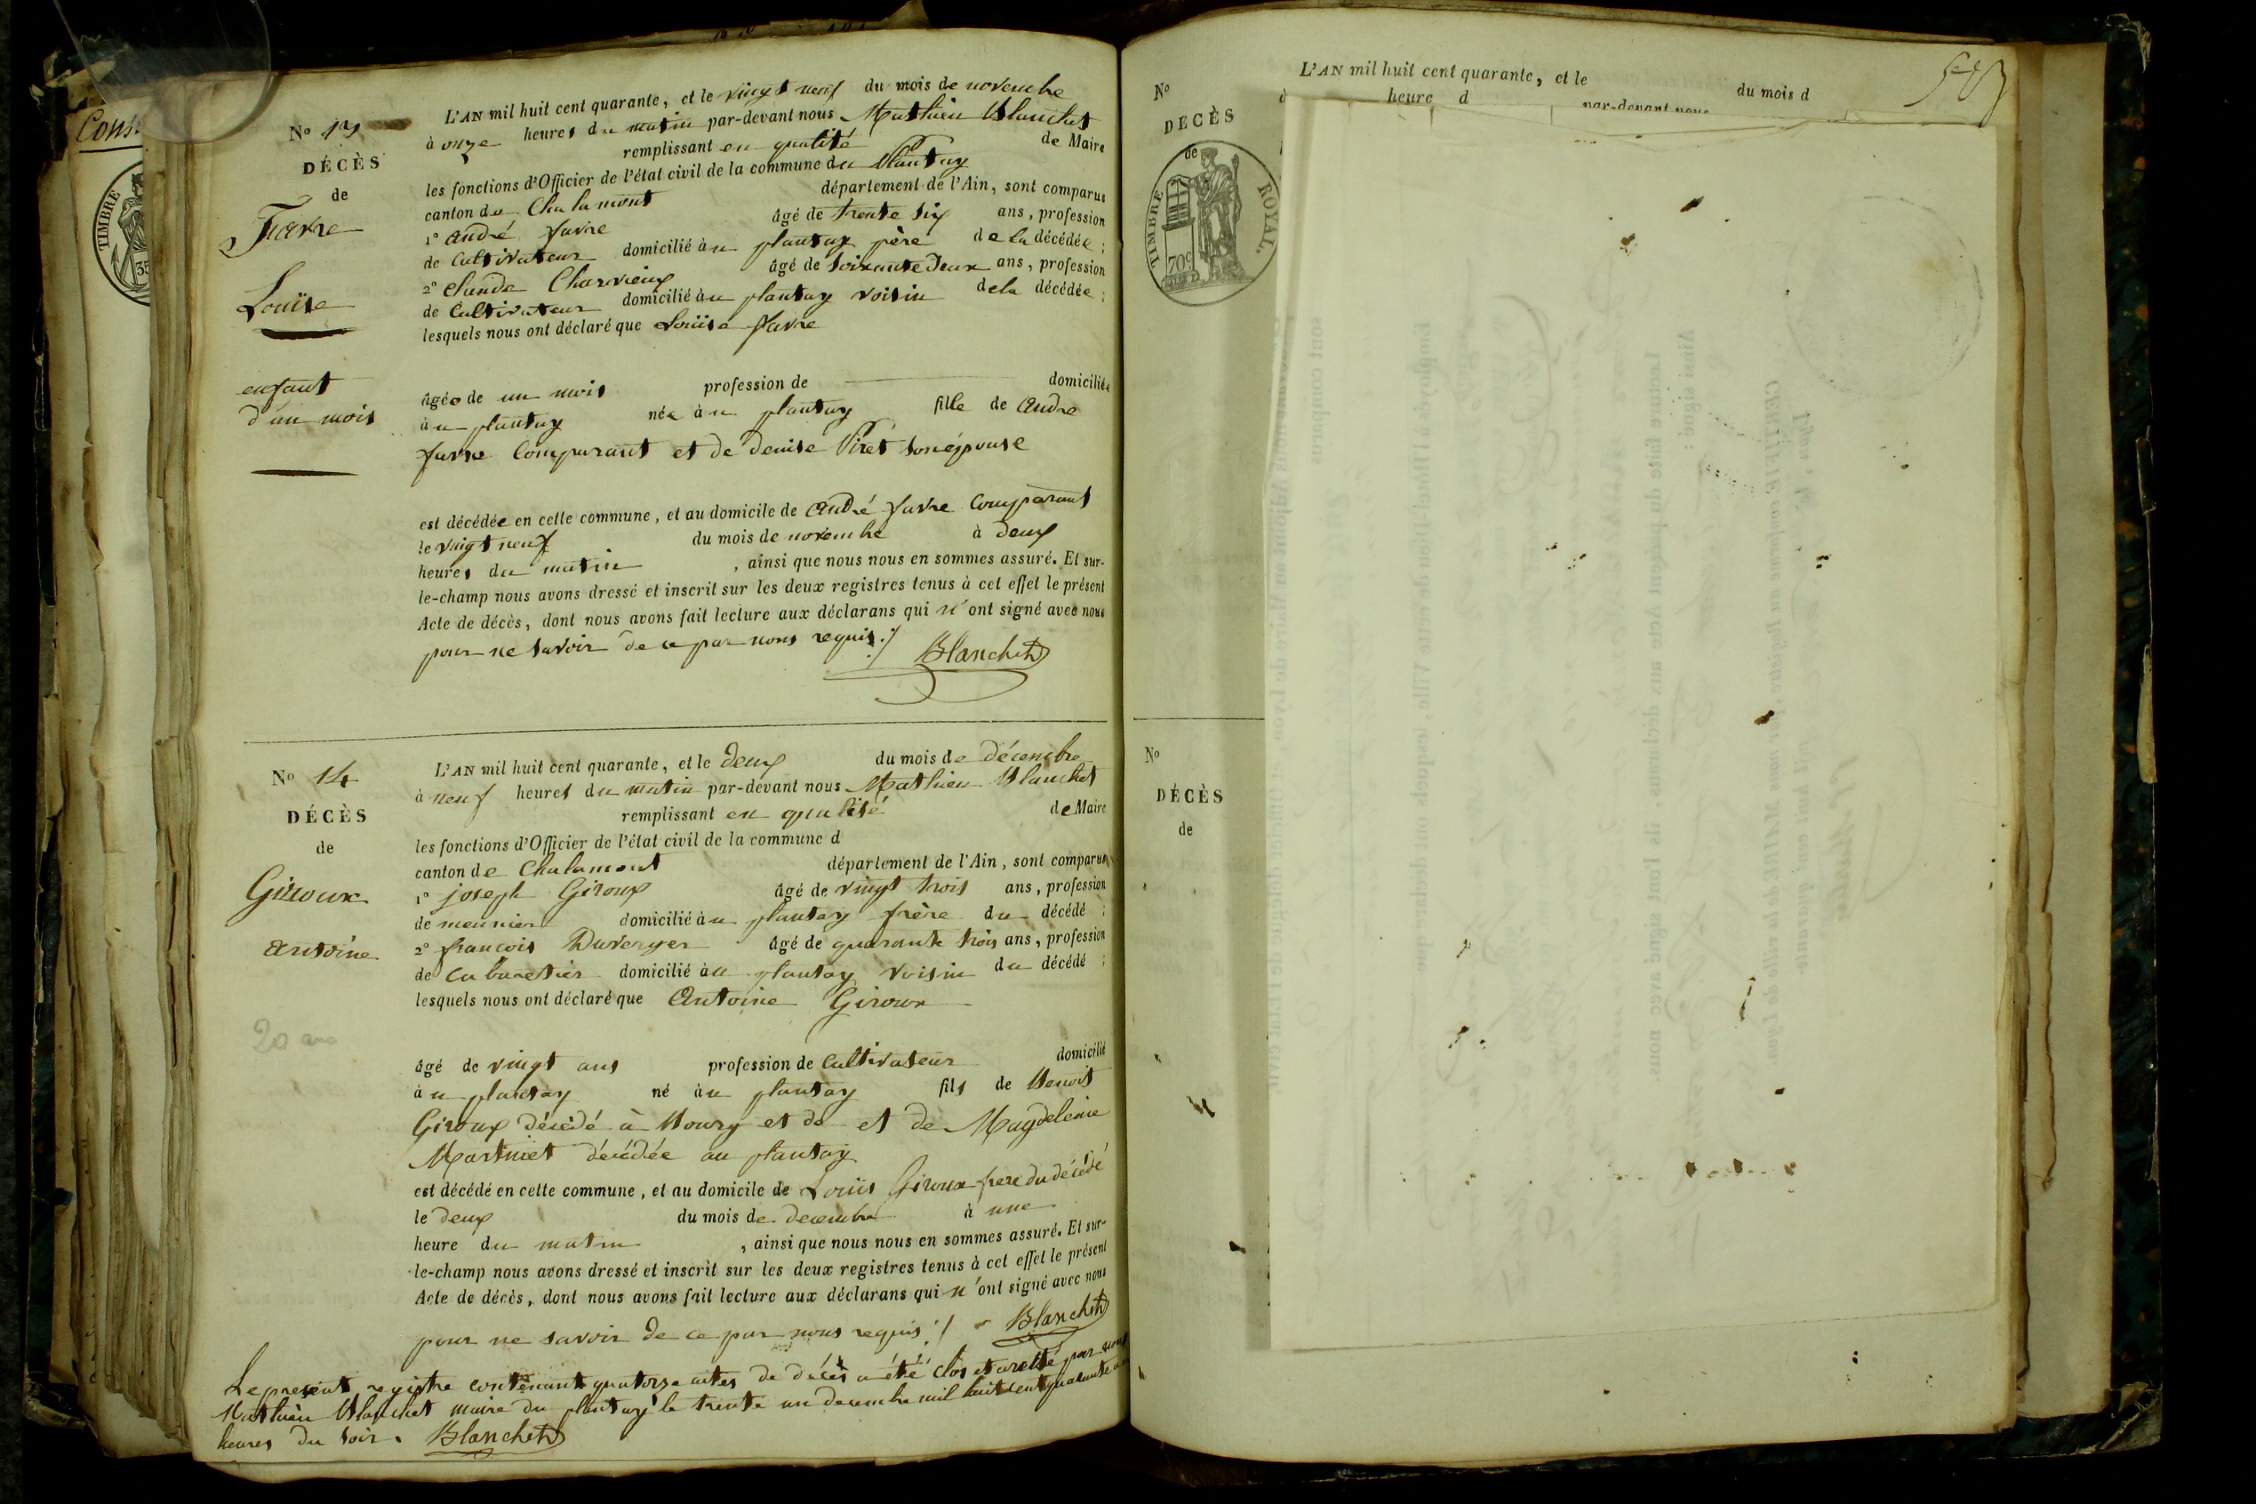 Cons
TIMBRE
35
N° 13
DÉCÈS
de
Favre
Louise
enfant
d'un mois
L'AN mil huit cent quarante, et le vingt neuf du mois de novembre
à onze heures du matin par-devant nous Mathieu Blanchet
remplissant en qualité de Maire
les fonctions d'Officier de l'état civil de la commune du Plantay
canton de Chalamont département de l'Ain, sont comparus
1° andré favre âgé de trente six ans, profession
de Cultivateur domicilié au plantay père de la décédée ;
2° Claude Charvieux âgé de soixante Deux ans, profession
de Cultivateur domicilié au plantay voisin de la décédée ;
lesquels nous ont déclaré que Louise favre
âgée de un mois profession de domiciliée
au plantay née au plantay fille de André
favre Comparant et de denise Piret son épouse
est décédée en cette commune, et au domicile de André favre Comparant
le vingt neuf du mois de novembre à deux
heures du matin , ainsi que nous nous en sommes assuré. Et sur-
le-champ nous avons dressé et inscrit sur les deux registres tenus à cet effet le présent
Acte de décès, dont nous avons fait lecture aux déclarans qui n'ont signé avec nous
pour ne savoir de ce par nous requis ./ Blanchet
N° 14
DÉCÈS
de
Giroux
antoine
20 ans
L'AN mil huit cent quarante, et le deux du mois de décembre
à neuf heures du matin par-devant nous Mathieu Blanchet
remplissant en qualité de Maire
les fonctions d'Officier de l'état civil de la commune d
canton de Chalamont département de l'Ain, sont comparus
1° joseph Giroux âgé de vingt trois ans, profession
de meunier domicilié au plantay frère du décédé ;
2° françois Duverger âgé de quarante trois ans, profession
de Cabaretier domicilié au plantay voisin du décédé ;
lesquels nous ont déclaré que Antoine Giroux
âgé de vingt ans profession de Cultivateur domicilié
au plantay né au plantay fils de Benoit
Giroux décédé à Bourg et de et de Magdeleine
Martinet décédée au plantay
est décédé en cette commune, et au domicile de Louis Giroux frere du décédé
le deux du mois de decembre à une
heure du matin , ainsi que nous nous en sommes assuré. Et sur-
le-champ nous avons dressé et inscrit sur les deux registres tenus à cet effet le présent
Acte de décès, dont nous avons fait lecture aux déclarans qui n'ont signé avec nous
pour ne savoir de ce par nous requis ./ Blanchet
Le present registre contenant quatorze actes de décès a été clos et aretté par nous
Mathieu Blanchet maire du plantay le trente un decembre mil huit cent quarante
heures du soir. Blanchet
N°
DÉCÈS
de
TIMBRE ROYAL.
70c
L'AN mil huit cent quarante, et le du mois d
heure d par-devant nous
N°
DÉCÈS
de